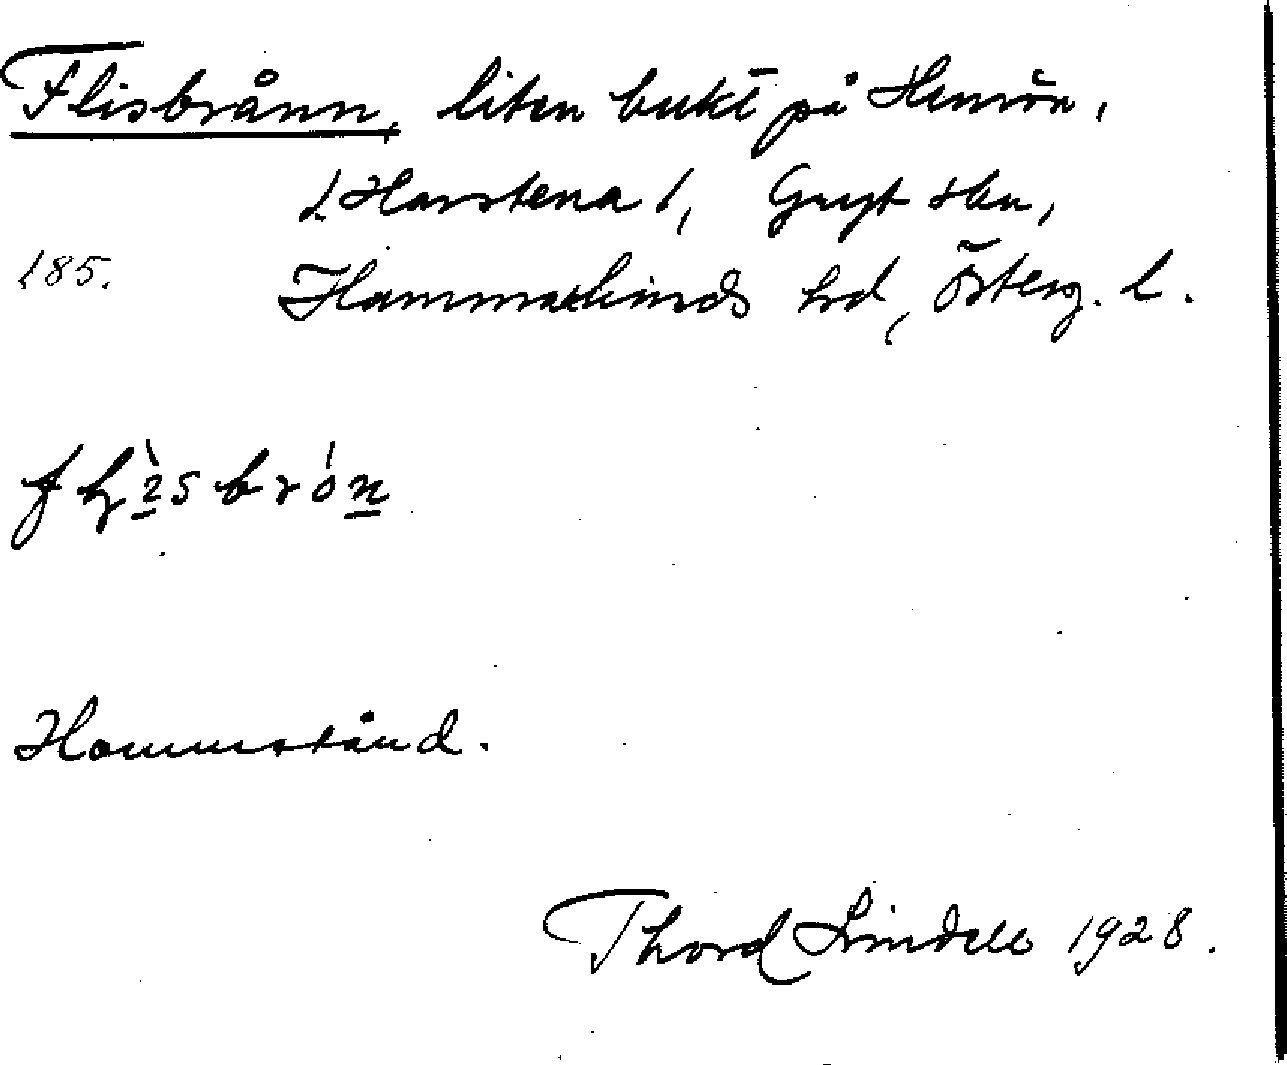 Flisbrånn, liten bukt på Hemön,
1 Harstena 1, Gryt skn,
185.
Hammarkinds hd, Österg. l.
Hamnstånd.
Thord Lindell 1928.